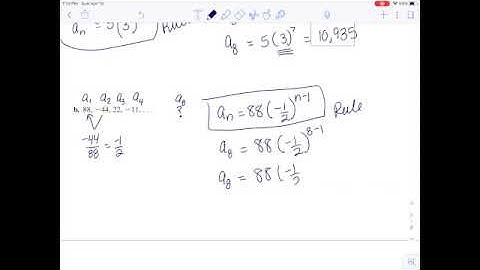 aₙ = 5(3) Rule
a₈ = 5(3)⁷ = 10,935
a₁ a₂ a₃ a₄
b. 88, −44, 22, −11, . . .
a₈
?
−44/88 = −1/2
aₙ = 88(−1/2)ⁿ⁻¹ Rule
a₈ = 88(−1/2)⁸⁻¹
a₈ = 88(−1/2